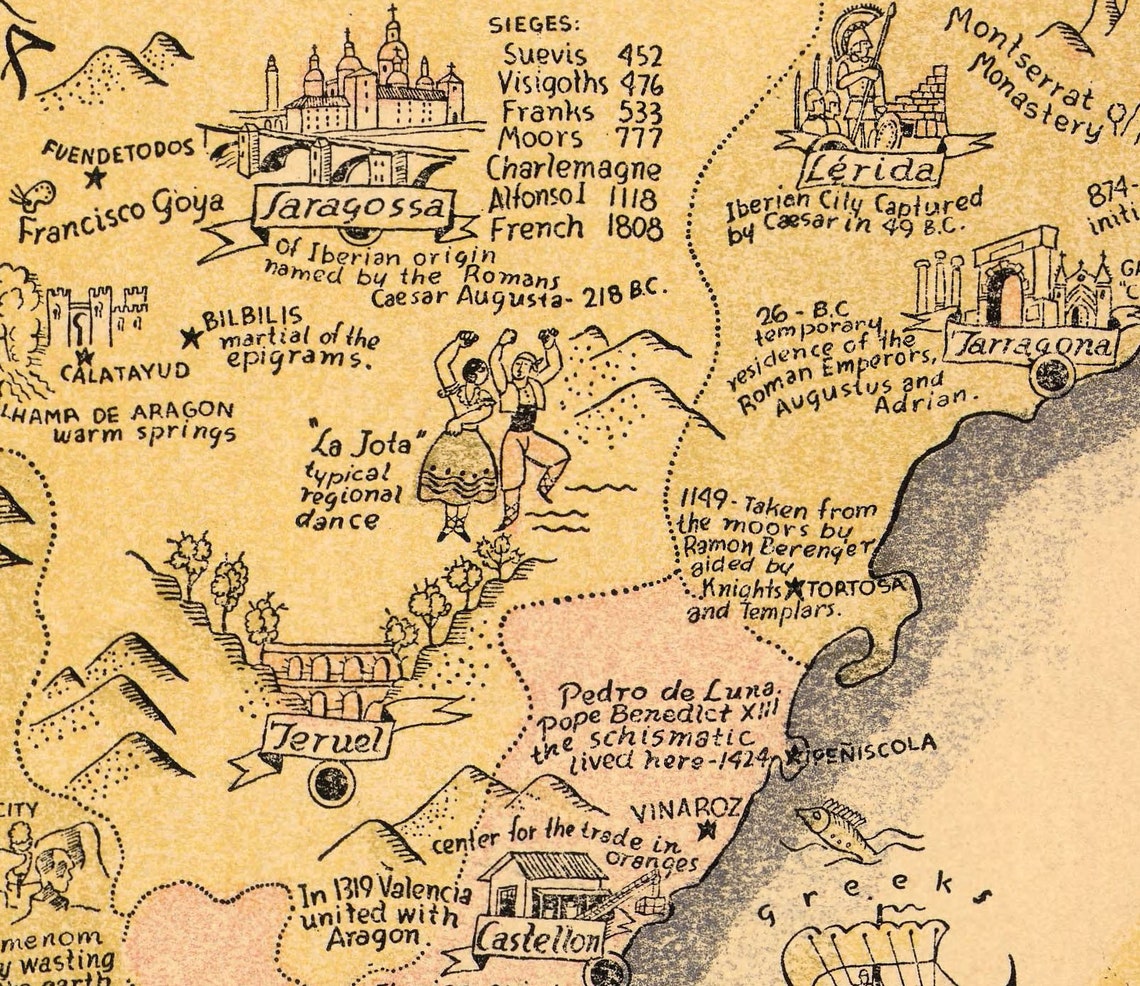 SIEGES:
Suevis 452
Visigoths 476
Franks 533
Moors 777
Charlemagne
Alfonso I 1118
French 1808
Montserrat
Monastery
FUENDETODOS
Francisco Goya
Saragossa
of Iberian origin
named by the Romans
Caesar Augusta - 218 B.C.
Lérida
Iberian City Captured
by Caesar in 49 B.C.
874-
initi
BILBILIS
martial of the
epigrams.
CALATAYUD
LHAMA DE ARAGON
warm springs
26 - B.C
temporary
residence of the
Roman Emperors,
Augustus and
Adrian.
Tarragona
"La Jota"
typical
regional
dance
1149 - Taken from
the moors by
Ramon Berenger
aided by
Knights TORTOSA
and Templars.
Teruel
Pedro de Luna,
pope Benedict XIII
the schismatic
lived here - 1424
PEÑISCOLA
VINAROZ
center for the trade in
oranges
CITY
In 1319 Valencia
united with
Aragon.
Castellon
Greeks
menom
y wasting
earth